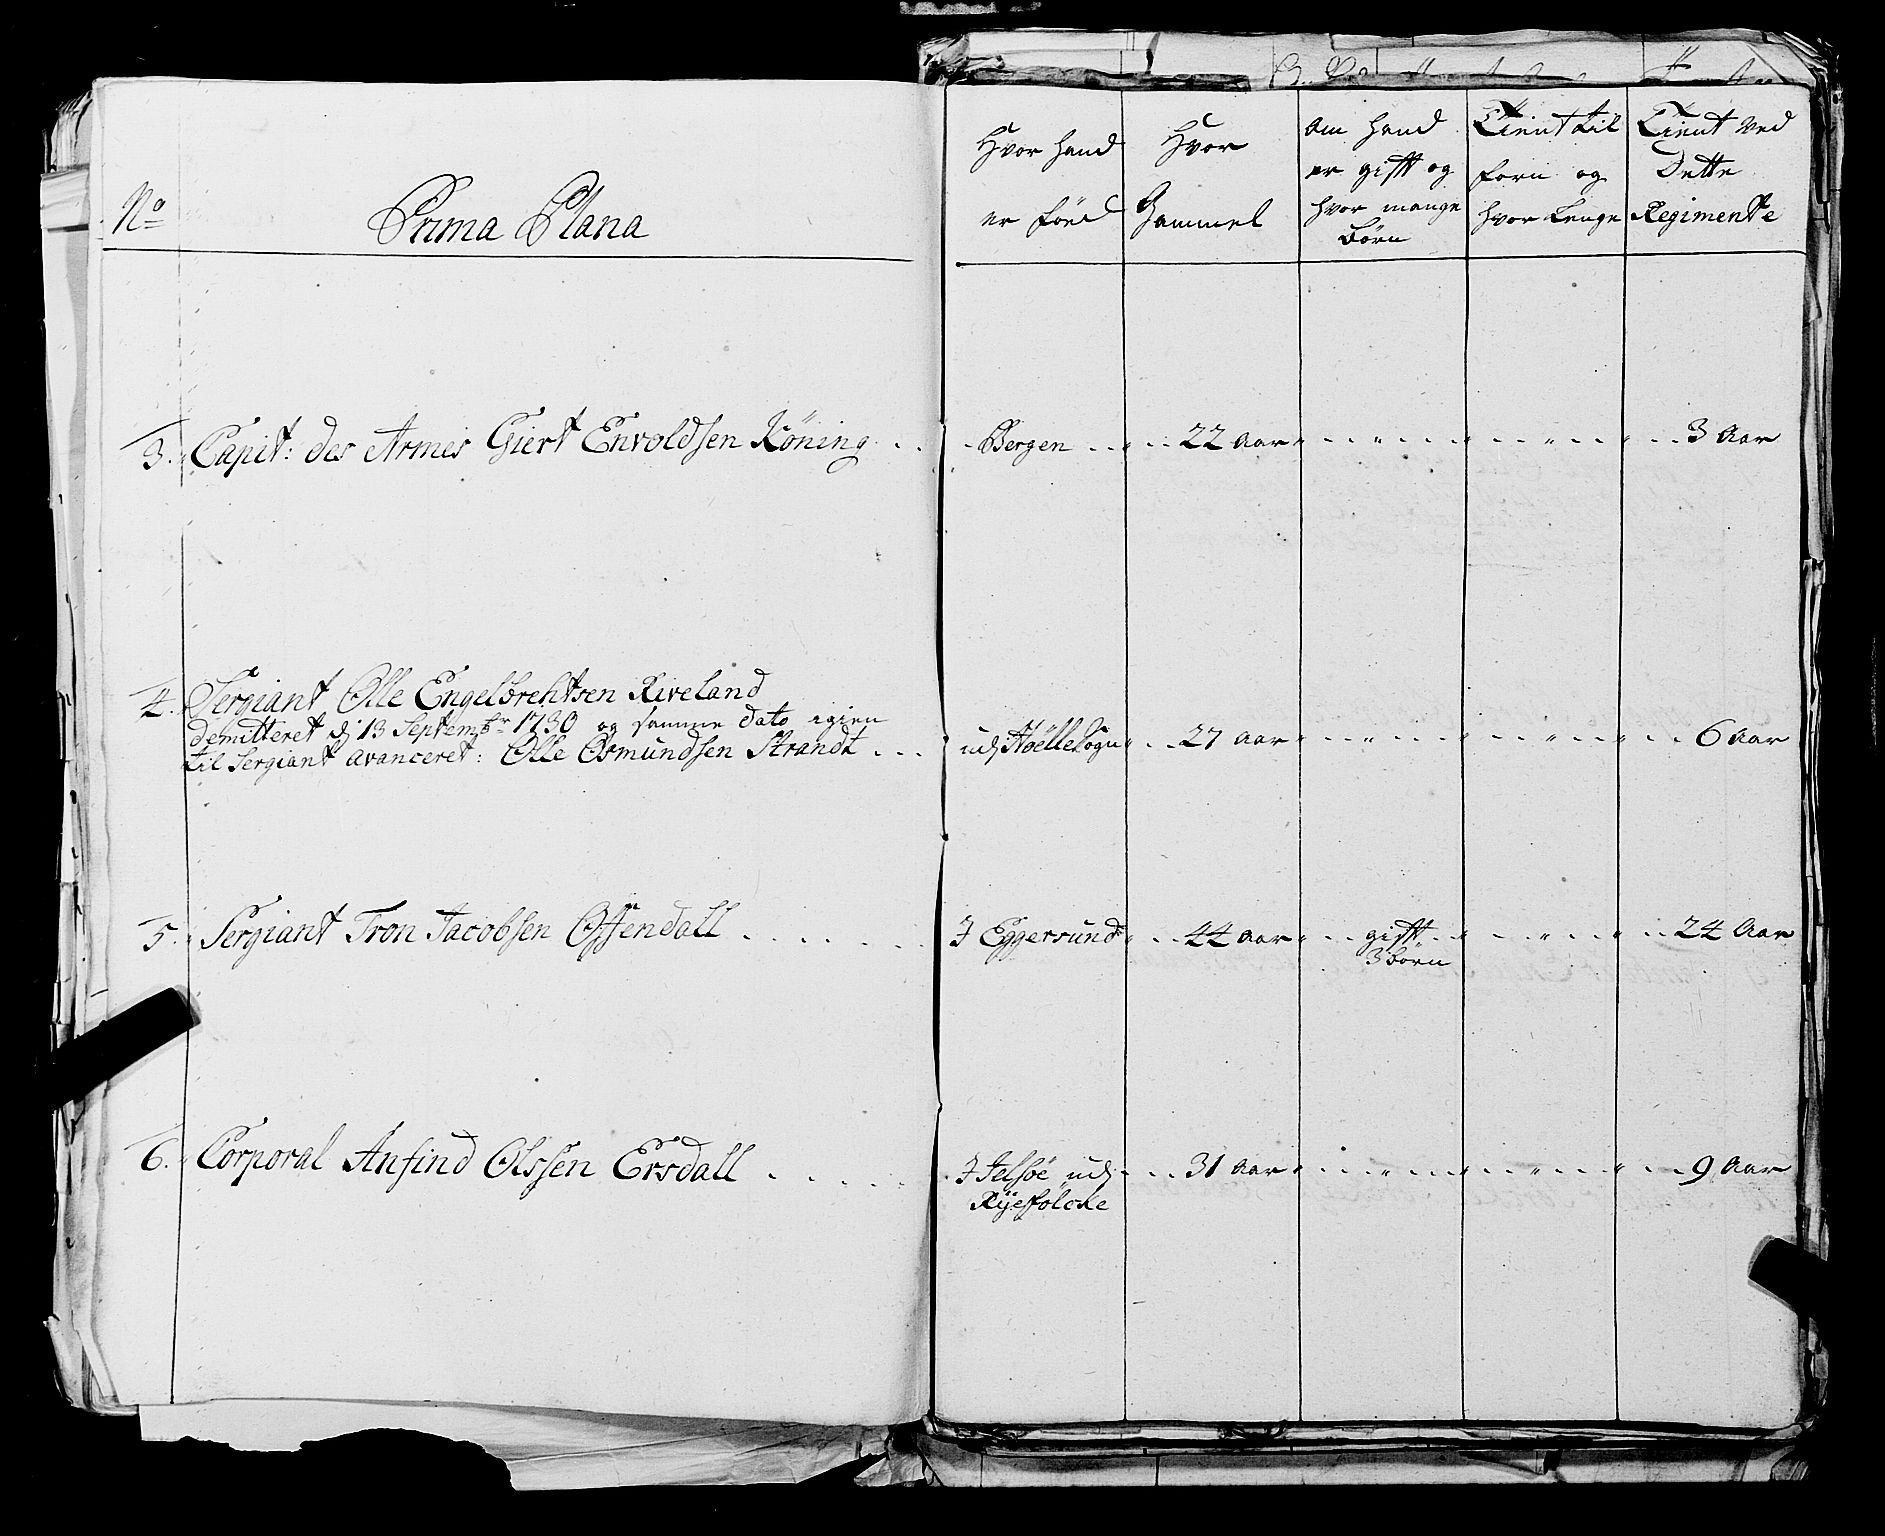 No Prima Plana
Hvor hand er föed
Hvor Gammel
om hand er gift og hvor mange börn
Tient til forn og hvor lenge
Tient ved Dette Regimente
3. Capit: des Armes Giert Envoldsen Köning . . Bergen . . 22 aar 3 Aar
4. Sergiant Olle Engelbrehtsen Riveland
demitteret d 13 Septembr 1730 og samme dato igien
til Sergiant avanceret: Olle Osmundsen Strandt . . . ud Höÿle Sogn . . 27 aar 6 aar
5. Sergiant Tron Jacobsen Ossendall J Eggersund . . 44 aar gift 24 Aar
3 börn
6. Corporal Anfind Olssen Ersdall J Jelsöe ud . . 31 aar 9 Aar
Ryefölcke